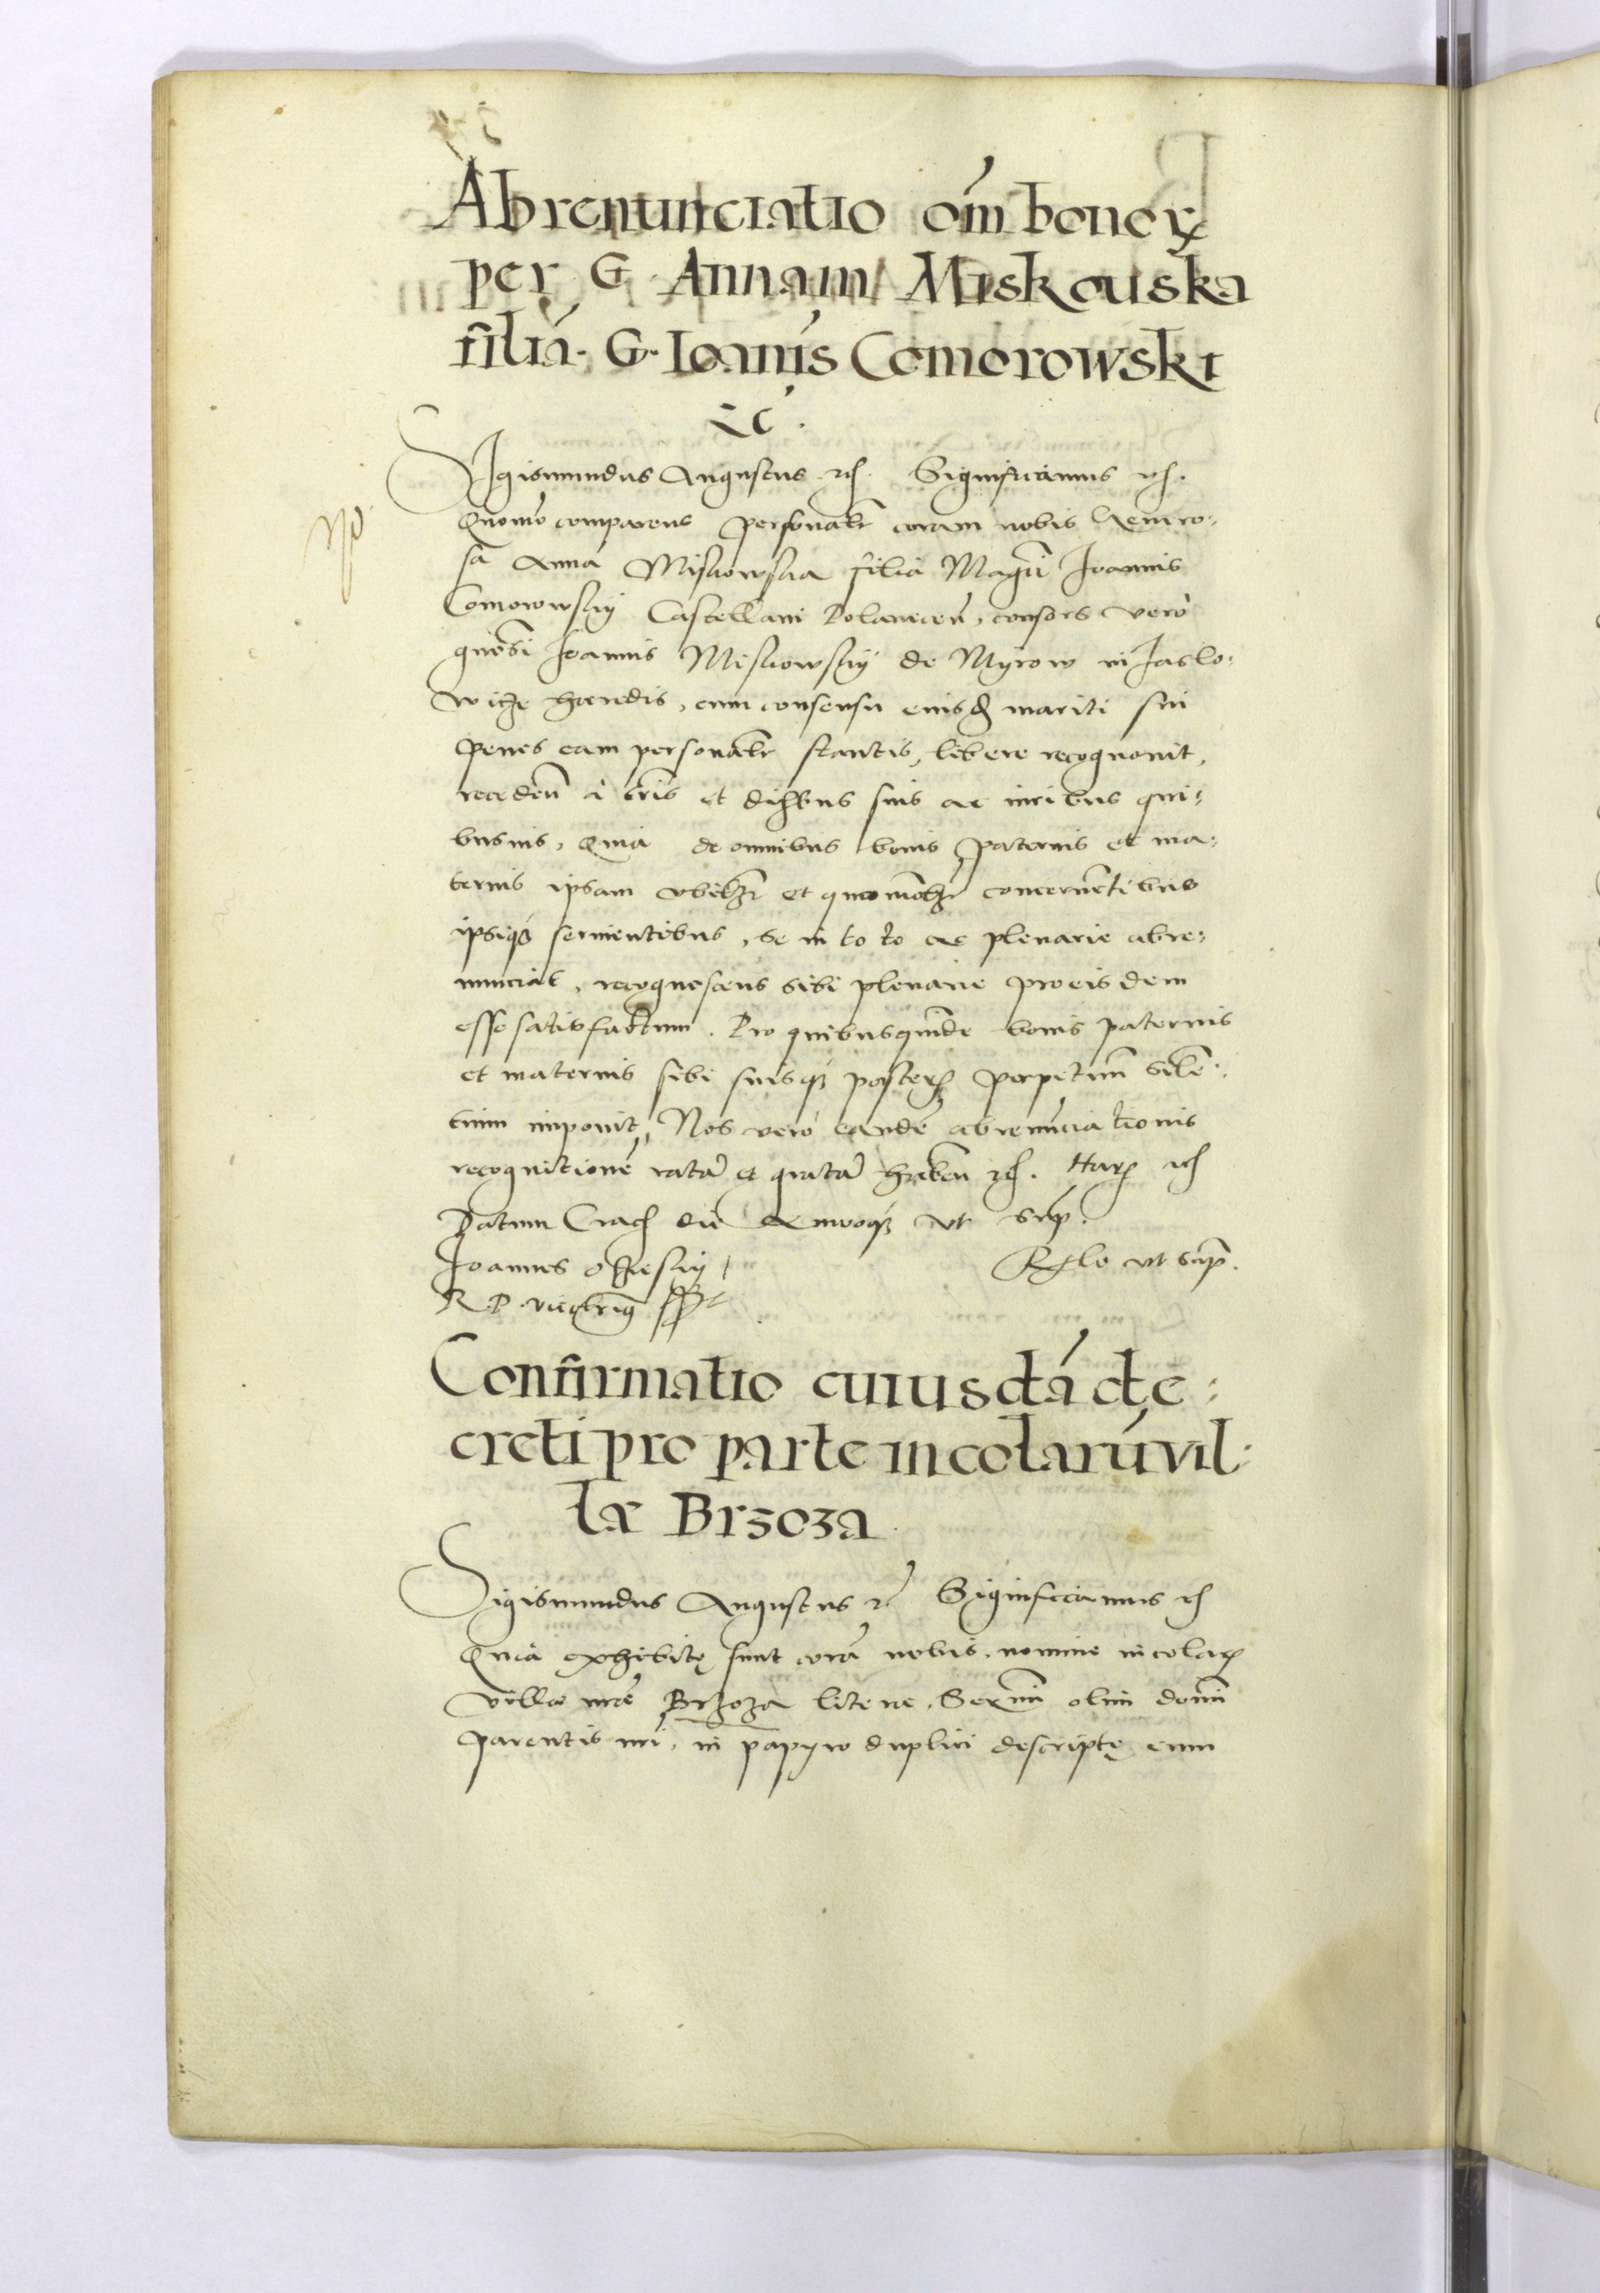 Abrenunciatio oīm bonorꝝ
per G. Annam Miskouska
filiā. G. Ioanīs Comorowski
ꝛc̄.
Sigismundus Augustus ꝛc. Significamus ꝛc.
Quomō comparens personalr̄ coram nobis Genero:
sa Anna Miskowska filia Magcī Ioannis
Comorowskij Castellani Polanieceñ, consors vero
gnōsi Ioannis Miskowskij de Myrow in Jaslo:
wicze haeredis, cum consensu eiusd mariti sui
penes eam personalr̄ stantis, libere recognovit,
recedeñ à trīs et distbus suis ac iuribus qui:
busuis, Quia de omnibus bonis paternis et ma:
ternis ipsam vbilꝫ et quomōlꝫ concernentibus
ipsiqꝫ seruientibus, se in toto ac plenarie abre:
nunciat, recognoscens sibi plenarie pro eisdem
esse satisfactum. Pro quibusquidē bonis paternis
et maternis sibi suisqꝫ posterꝭ perpetuū silen:
tium imponit, Nos vero eandē abrenunciationis
recognitionē ratā et gratā habeñ ꝛc. Harꝫ ꝛc
Datum Crac die Annoqꝫ vt supr̄.
Joannes Oczieskij
R. P. vicecāriꝰ ssp̄t
Rlo vt sup̄.
Confirmatio cuiusdā de:
creti pro parte incolarū vil:
læ Brzoza
Sigismundus Augustus ꝛc Significamus ꝛc
Quia exhibitę sunt corā nobis, nomine incolarꝫ
villae nrāe Brzoza literae, Serenmi olim domī
parentis nrī, in papyro duplici descriptę cum